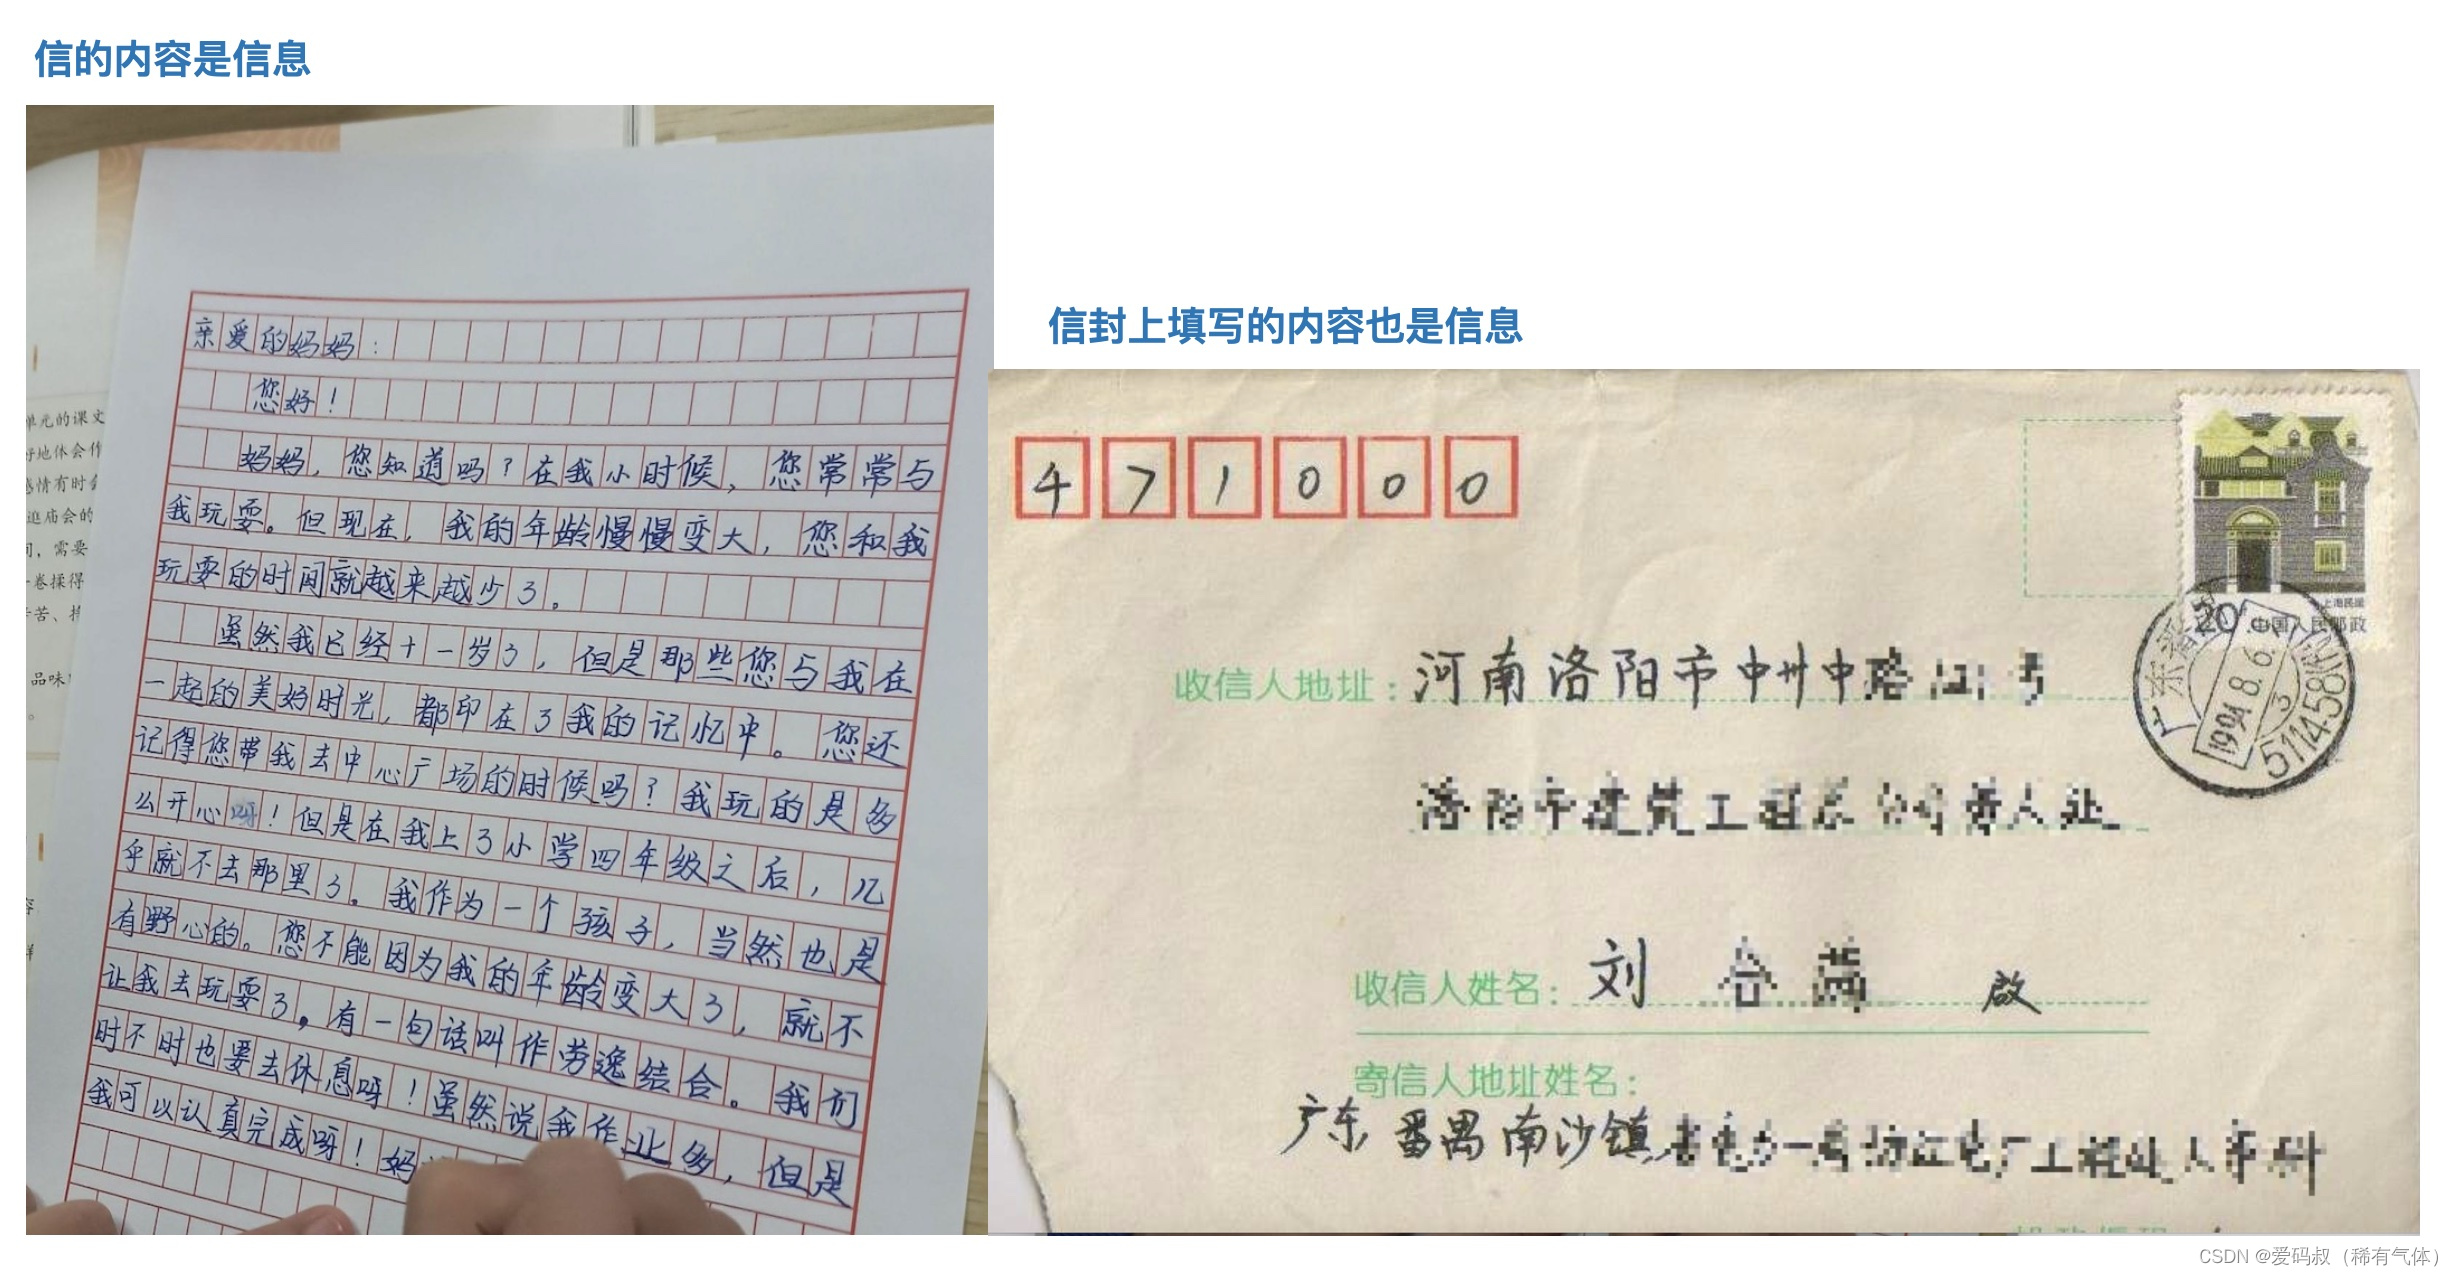 信的内容是信息
亲爱的妈妈：
您好！
妈妈，您知道吗？在我小时候，您常常与
我玩耍。但现在，我的年龄慢慢变大，您和我
玩耍的时间就越来越少了。
虽然我已经十一岁了，但是那些您与我在
一起的美好时光，都印在了我的记忆中。您还
记得您带我去中心广场的时候吗？我玩的是多
么开心呀！但是在我上了小学四年级之后，几
乎就不去那里了。我作为一个孩子，当然也是
有野心的。您不能因为我的年龄变大了，就不
让我去玩耍了。有一句话叫作劳逸结合。我们
时不时也要去休息呀！虽然说我作业多，但是
我可以认真完成呀！妈
单元的课文
好地体会作
感情有时
逛庙会的
需要
卷揉得
苦、
品味
信封上填写的内容也是信息
471000
收信人地址：河南洛阳市中州中路 号
洛阳市建筑工程 公司 人
收信人姓名：刘 启
寄信人地址姓名：
广东番禺南沙镇 电 一 电厂工程处人事科
上海民居
20 中国人民邮政
广东番禺
1994.8.6.
3
511458
CSDN @爱码叔（稀有气体）